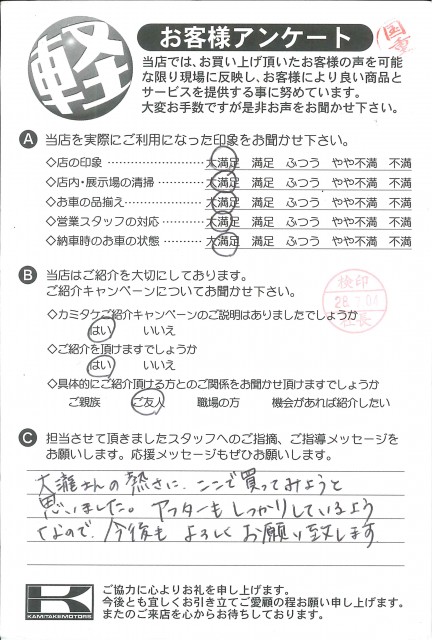 軽
お客様アンケート
当店では、お買い上げ頂いたお客様の声を可能
な限り現場に反映し、お客様により良い商品と
サービスを提供する事に努めています。
大変お手数ですが是非お声をお聞かせ下さい。
A 当店を実際にご利用になった印象をお聞かせ下さい。
◇店の印象 大満足 満足 ふつう やや不満 不満
◇店内・展示場の清掃 大満足 満足 ふつう やや不満 不満
◇お車の品揃え 大満足 満足 ふつう やや不満 不満
◇営業スタッフの対応 大満足 満足 ふつう やや不満 不満
◇納車時のお車の状態 大満足 満足 ふつう やや不満 不満
B 当店はご紹介を大切にしております。
ご紹介キャンペーンについてお聞かせ下さい。
検印
28.7.04
社長
◇カミタケご紹介キャンペーンのご説明はありましたでしょうか
はい いいえ
◇ご紹介を頂けますでしょうか
はい いいえ
◇具体的にご紹介頂ける方とのご関係をお聞かせ頂けますでしょうか
ご親族 ご友人 職場の方 機会があれば紹介したい
C 担当させて頂きましたスタッフへのご指摘、ご指導メッセージを
お願いします。応援メッセージもぜひお願いします。
大瀧さんの熱さに、ここで買ってみようと
思いました。アフターもしっかりしているよう
なので、今後も よろしく お願い致します
K
KAMITAKEMOTORS
ご協力に心よりお礼を申し上げます。
今後とも宜しくお引き立てご愛顧の程お願い申し上げます。
またのご来店を心からお待ちしております。